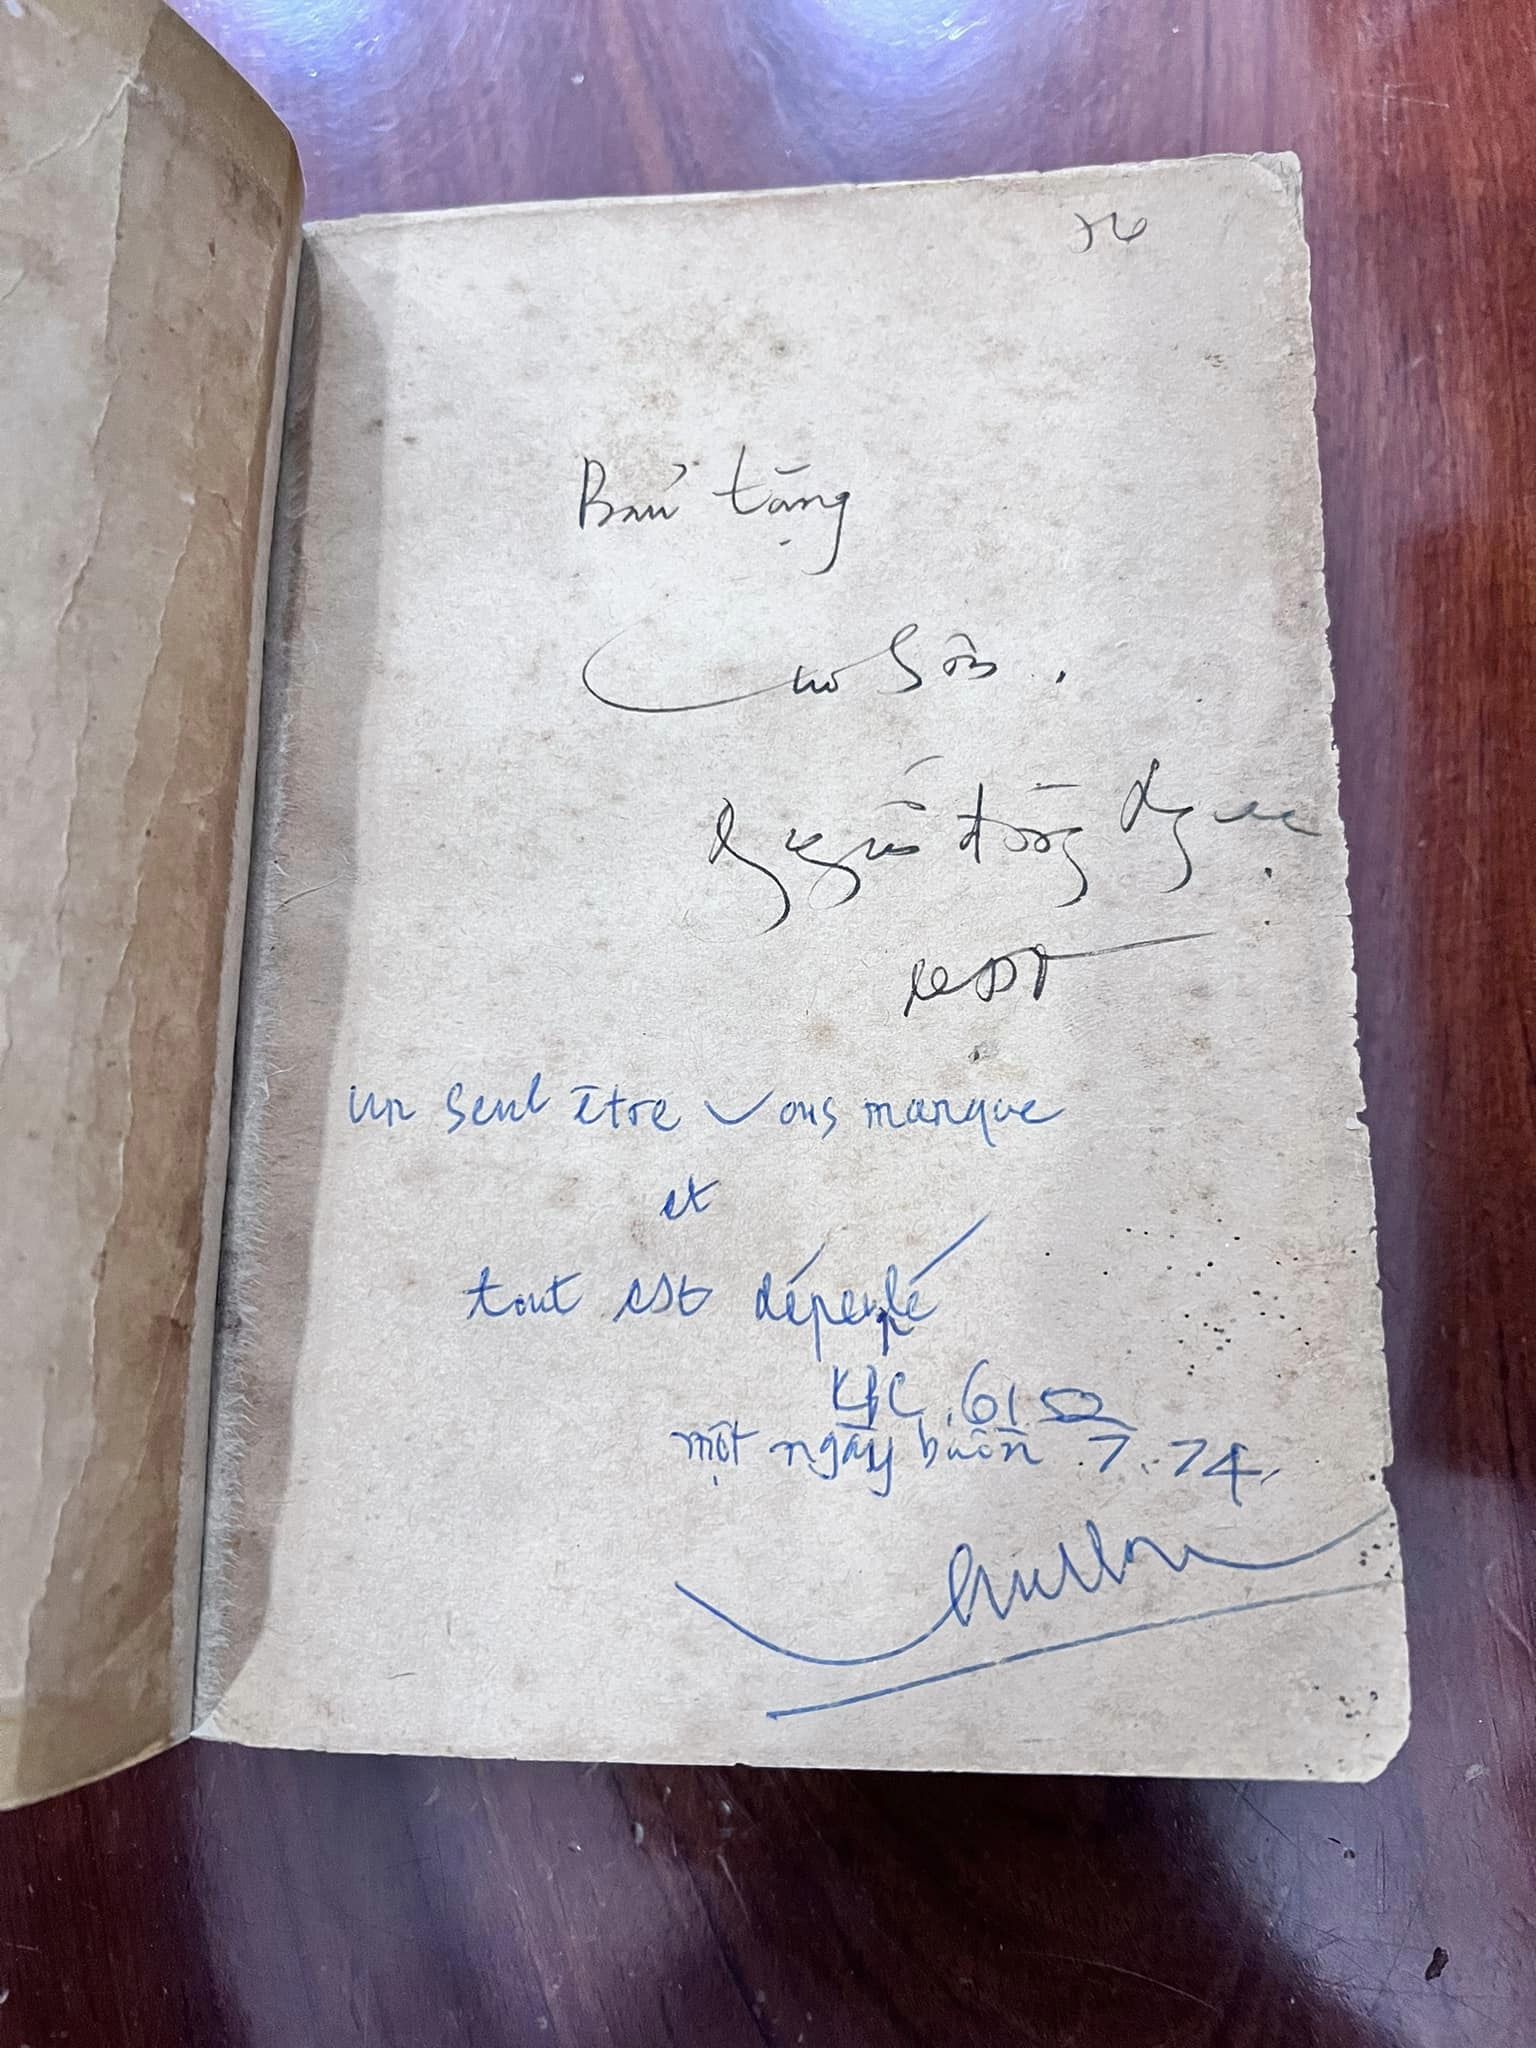 Bửu tặng
Chu Sơn.
Nguyễn đông Ngạc
un seul être vous manque
et
tout est dépeuplé
KBC. 6150
một ngày buồn 7.74.